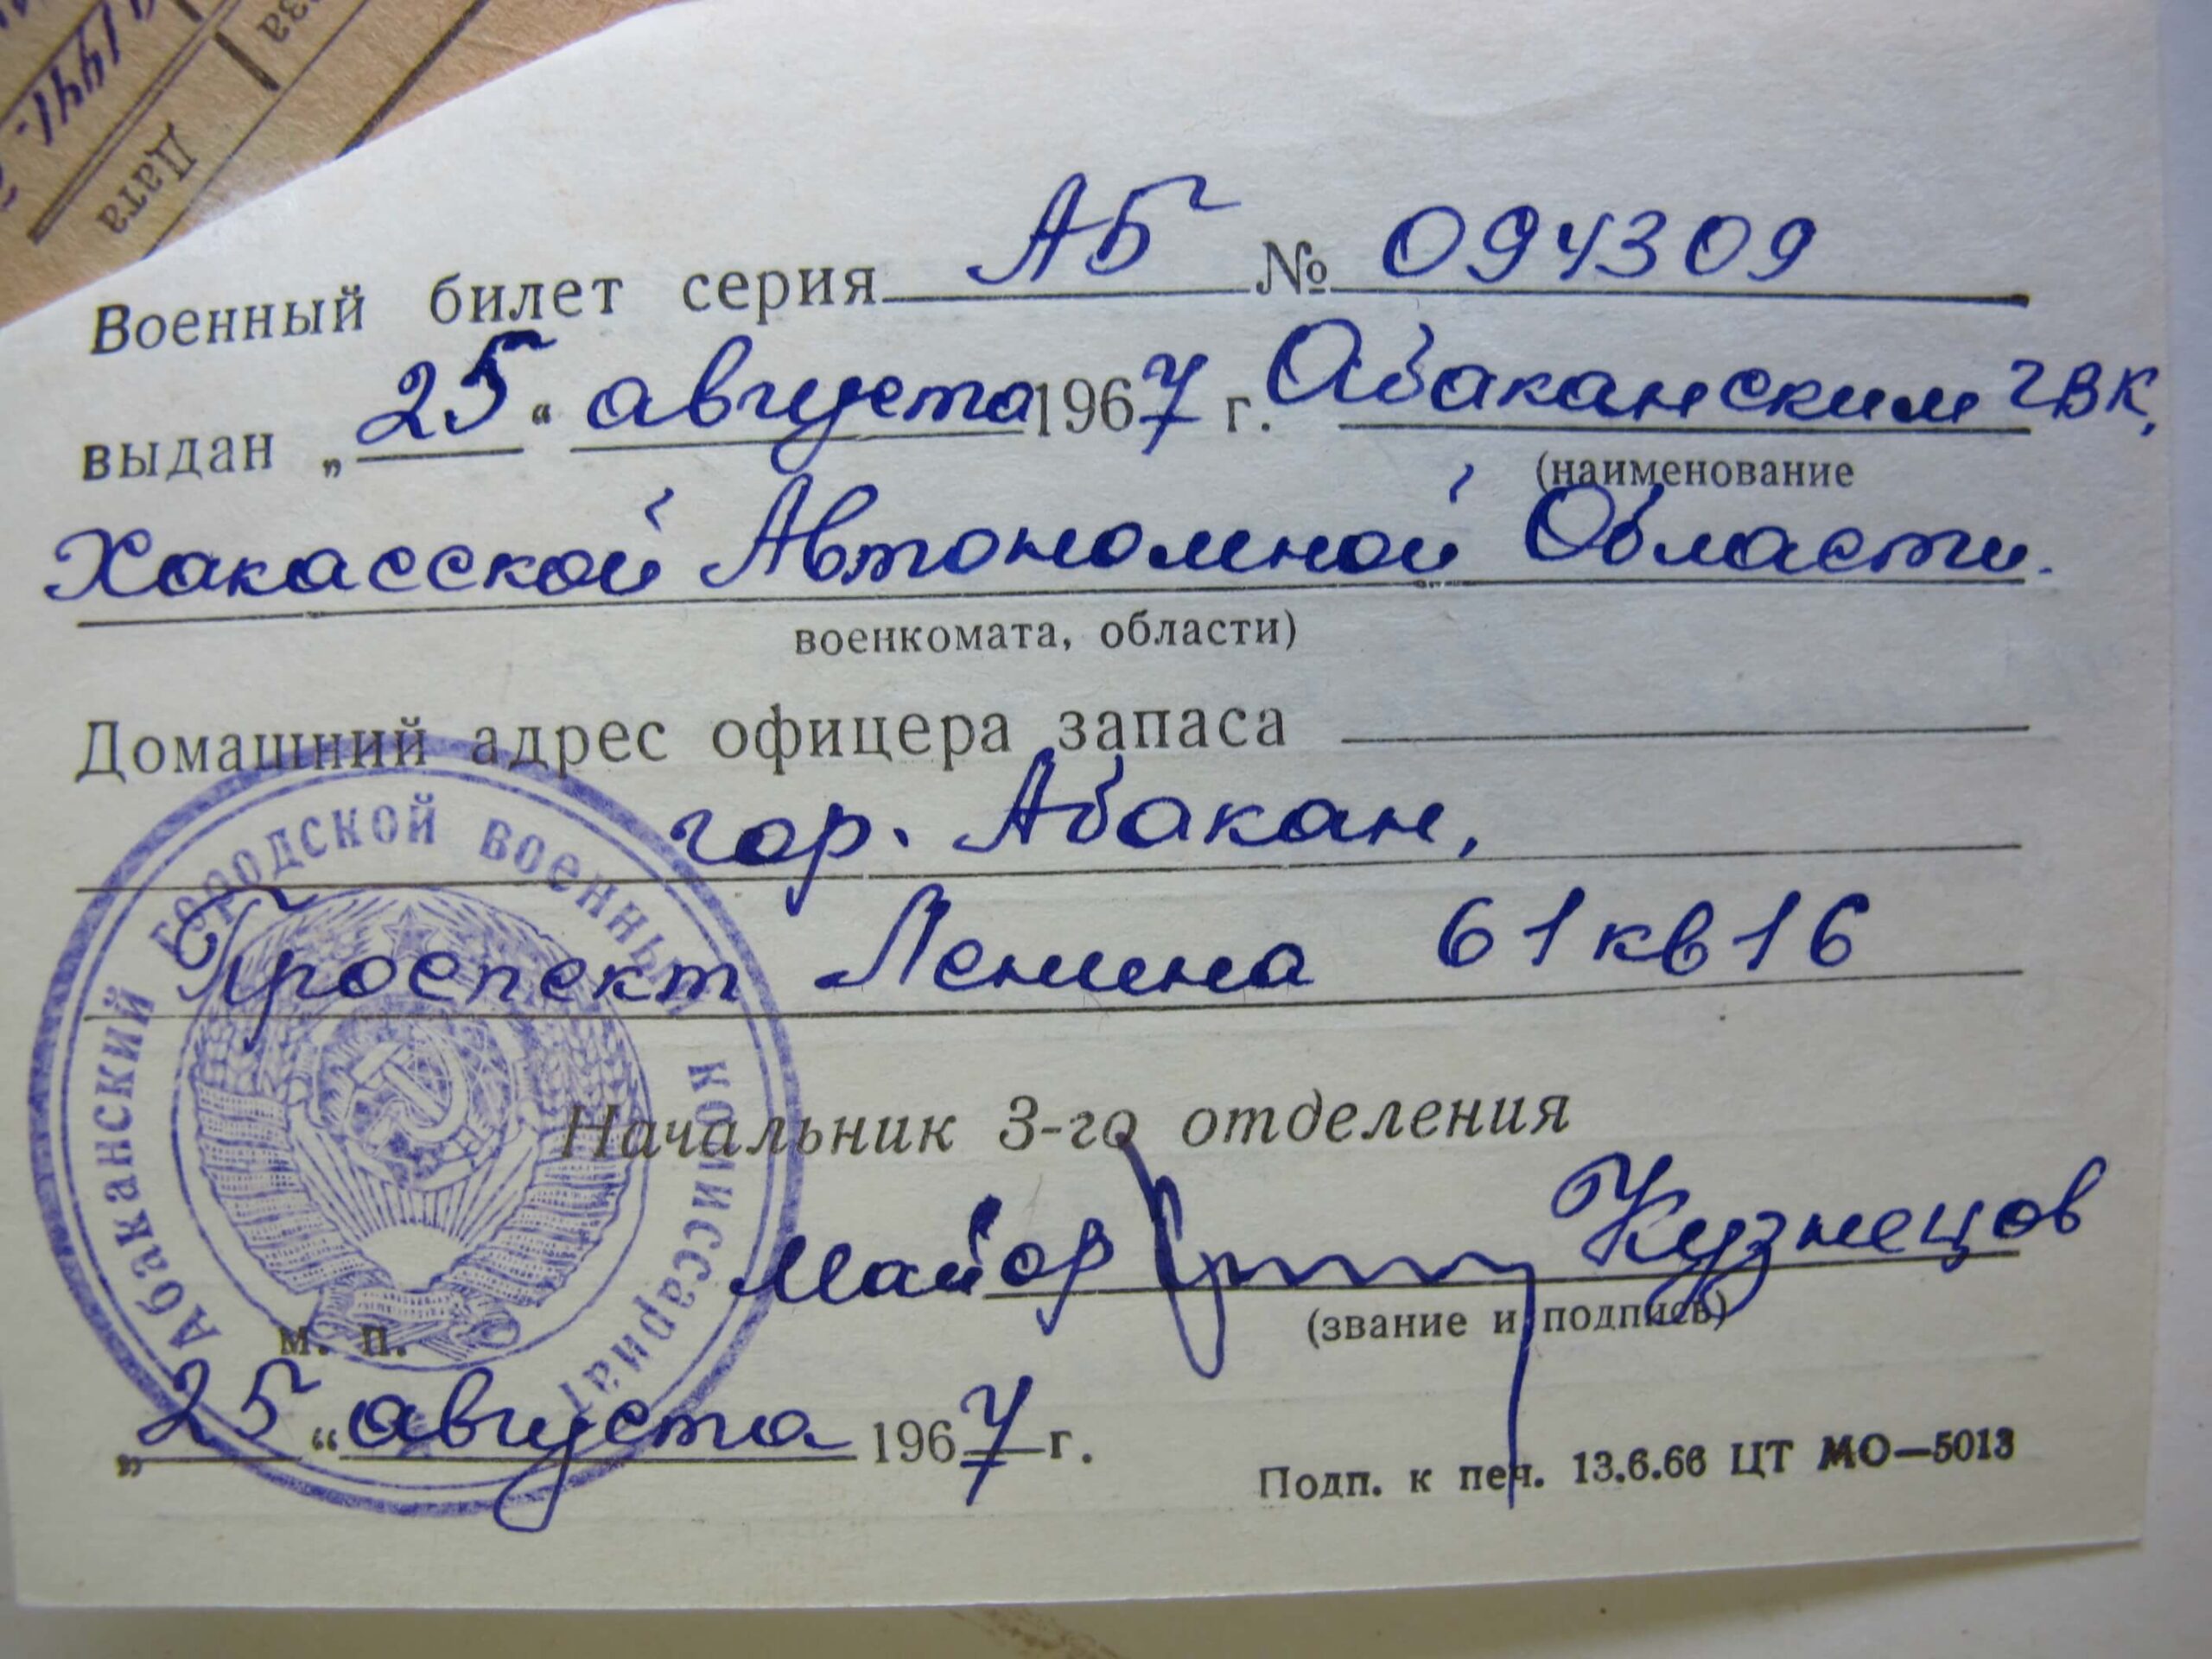 Дата
Военный билет серия АБ № 094309
выдан „25“ августа 1967 г. Абаканским ГВК,
(наименование
Хакасской Автономной Области.
военкомата, области)
Домашний адрес офицера запаса
гор. Абакан,
Проспект Ленина 61 кв 16
Начальник 3-го отделения
Майор Кузнецов
(звание и подпись)
М. П.
„25“ августа 1967 г.
Подп. к печ. 13.6.66 ЦТ МО—5013
Абаканский городской военный комиссариат